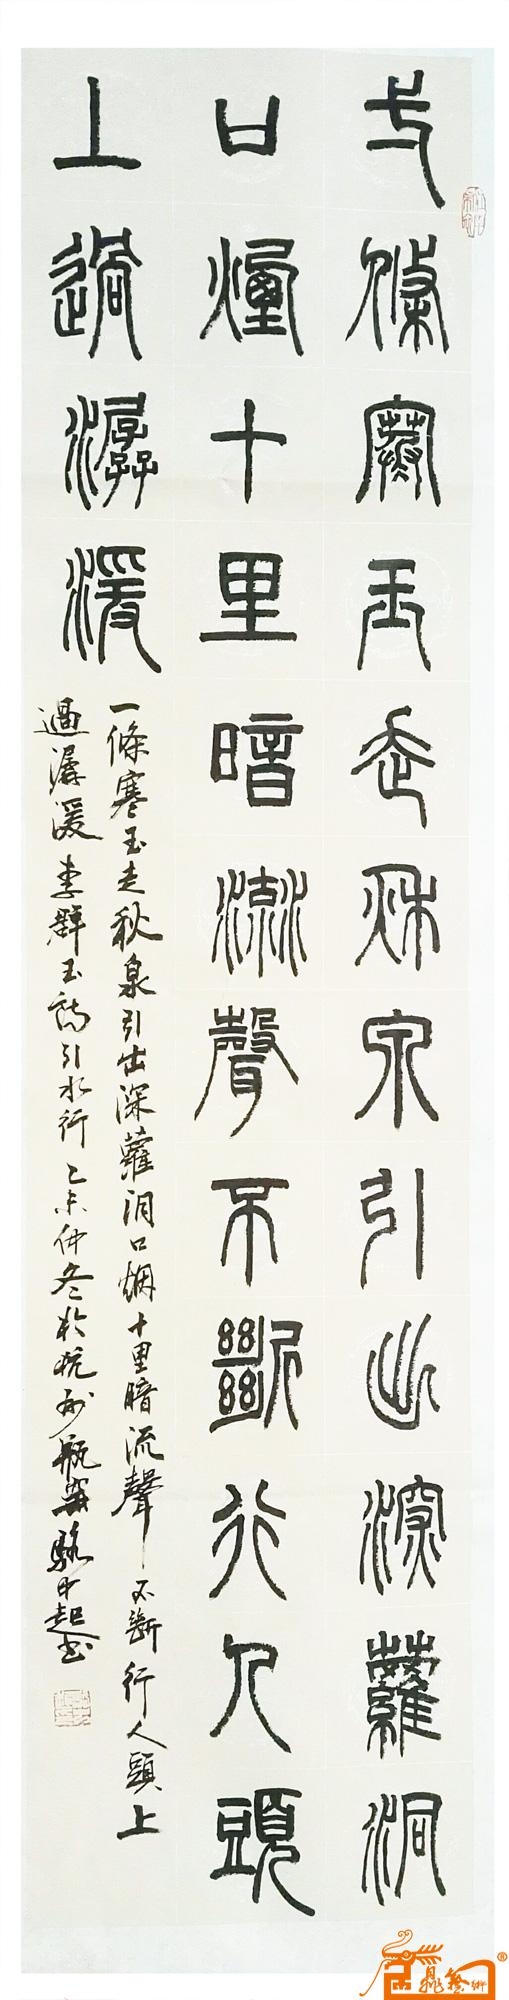 弌條寒玉走秌泉引出深蘿洞
口煙十里暗流聲不斷行人頭
上過潺湲
一條寒玉走秋泉引出深蘿洞口烟十里暗流聲不斷行人頭上
過潺湲李群玉詩引水行乙未仲冬於杭州